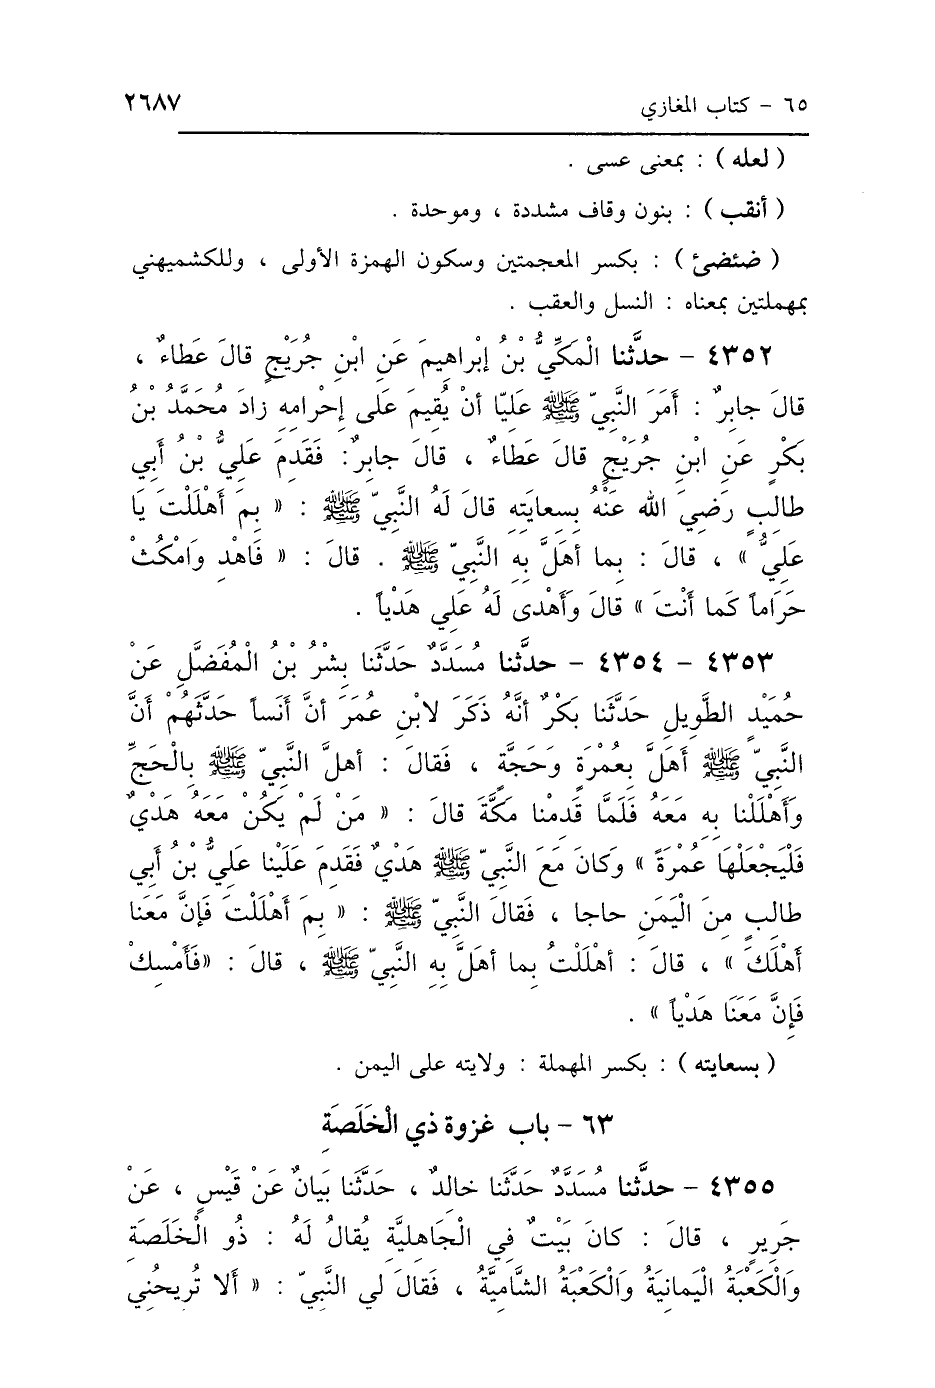 ٦٥ - كتاب المغازي ٢٦٨٧
( لعله ) : بمعنى عسى .
( أنقب ) : بنون وقاف مشددة ، وموحدة .
( ضئضئ ) : بكسر المعجمتين وسكون الهمزة الأولى ، وللكشميهني
بمهملتين بمعناه : النسل والعقب .
٤٣٥٢ - حدَّثنا الْمَكِّيُّ بْنُ إبْراهِيمَ عَنِ ابْنِ جُرَيْجٍ قالَ عَطاءٌ ،
قالَ جابِرٌ : أَمَرَ النَّبِيّ ﷺ عَلِيّا أنْ يُقِيمَ عَلى إحْرامِهِ زادَ مُحَمَّدُ بْنُ
بَكْرٍ عَنِ ابْنِ جُرَيْجٍ قالَ عَطاءٌ ، قالَ جابِرٌ: فَقَدِمَ عَلِيُّ بْنُ أَبِي
طالِبٍ رَضِيَ الله عَنْهُ بِسعايَتِهِ قالَ لَهُ النَّبِيّ ﷺ : « بِمَ أَهْلَلْتَ يَا
عَلِيُّ » ، قالَ : بِما أهَلَّ بِهِ النَّبِيّ ﷺ . قالَ : « فَاهْدِ وَامْكُثْ
حَرَاماً كَما أَنْتَ » قالَ وَأَهْدى لَهُ عَلِي هَدْياً .
٤٣٥٣ - ٤٣٥٤ - حدثَّنا مُسَدَّدٌ حَدَّثَنا بِشْرُ بْنُ الْمُفَضَّلِ عَنْ
حُمَيْدٍ الطَّوِيلِ حَدَّثَنا بَكْرٌ أنَّهُ ذَكَرَ لابْنِ عُمَرَ أنَّ أَنَساً حَدَّثَهُمْ أنَّ
النَّبِيّ ﷺ أَهَلَّ بِعُمْرَةٍ وَحَجَّةٍ ، فَقالَ : أهلَّ النَّبِيّ ﷺ بِالْحَجِّ
وَأَهْلَلْنا بِهِ مَعَهُ فَلَمَّا قَدِمْنا مَكَّةَ قالَ : « مَنْ لَمْ يَكُنْ مَعَهُ هَدْيٌ
فَلْيَجْعَلْهَا عُمْرَةً » وَكانَ مَعَ النَّبِيّ ﷺ هَدْيٌ فَقَدِمَ عَلَيْنا عَلِيُّ بْنُ أَبِي
طالِبٍ مِنَ الْيَمَنِ حاجا ، فَقالَ النَّبِيّ ﷺ : « بِمَ أَهْلَلْتَ فَإنَّ مَعَنا
أَهْلَكَ » ، قالَ : أهْلَلْتُ بِما أهَلَّ بِهِ النَّبِيّ ﷺ ، قالَ : «فَأَمْسِكْ
فَإِنَّ مَعَنَا هَدْياً » .
( بسعايته ) : بكسر المهملة : ولايته على اليمن .
٦٣ - باب غزوة ذي الْخَلَصَةِ
٤٣٥٥ - حدثَّنا مُسَدَّدٌ حَدَّثَنا خالِدٌ ، حَدَّثَنا بَيانٌ عَنْ قَيْسٍ ، عَنْ
جَرِيرٍ ، قالَ : كانَ بَيْتٌ فِي الْجَاهِليَّةِ يُقالُ لَهُ : ذُو الْخَلَصَةِ
وَالْكَعْبَةُ الْيَمانِيَةُ وَالْكَعْبَةُ الشَّامِيَّةُ ، فَقالَ لِي النَّبِيّ : « ألا تُرِيحُنِي